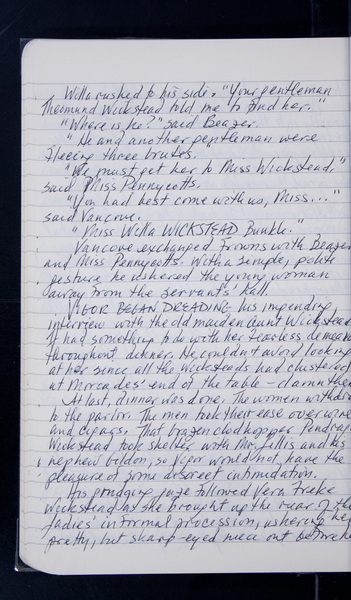 Willa rushed to his side. "Your gentleman
Thesmund Wickstead told me to find her."
"Where is he?" said Beazer.
"He and another gentleman were
fleeing three brutes."
"We must get her to Miss Wickstead,"
said Miss Pennycotts.
"You had best come with us, Miss..."
said Vancove.
"Miss Willa WICKSTEAD Bunkle."
Vancove exchanged frowns with Beazer
and Miss Pennycotts. With a simple, polite
gesture he ushered the young woman
away from the servants' hall.
VIGOR BEGAN DREADING his impending
interview with the old maiden aunt Wickstead
It had something to do with her fearless demeanor
throughout dinner. He couldn't avoid looking
at her since all the Wicksteads had clustered
at Morcades' end of the table - damn them
At last, dinner was done. The women withdrew
to the parlor. The men took their ease over wine
and cigars. That brazen clodhopper
Wickstead took shelter with and his
nephew so Vigor would not have the
pleasure of some discreet intimidation.
His grudging gaze followed Vera Freke
Wickstead as she brought up the rear of the
ladies' informal procession, ushering her
pretty, but sharp-eyed niece out before